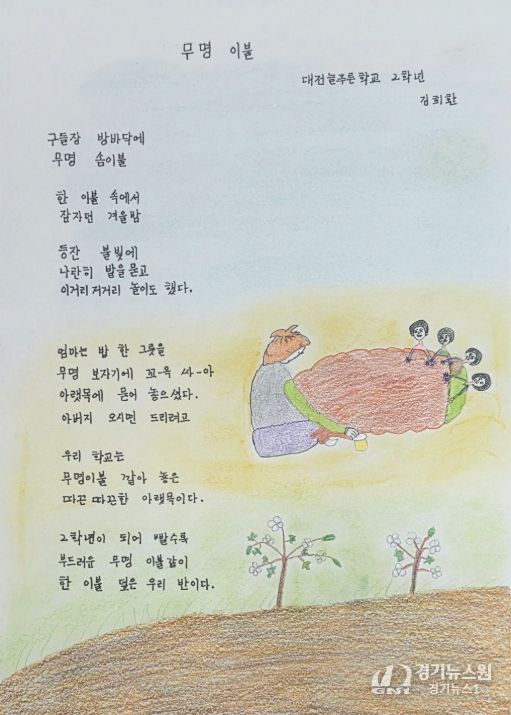 무명 이불
대전늘푸른학교 2학년
김희환
구들장 방바닥에
무명 솜이불
한 이불 속에서
잠자던 겨울밤
등잔 불빛에
나란히 발을 묻고
이거리저거리 놀이도 했다.
엄마는 밥 한 그릇을
무명 보자기에 꼬-옥 싸-아
아랫목에 묻어 놓으셨다.
아버지 오시면 드리려고
우리 학교는
무명이불 깔아 놓은
따끈 따끈한 아랫목이다.
2학년이 되어 빨수록
부드러운 무명 이불같이
한 이불 덮은 우리 반이다.
GN1
경기뉴스원
경기뉴스1